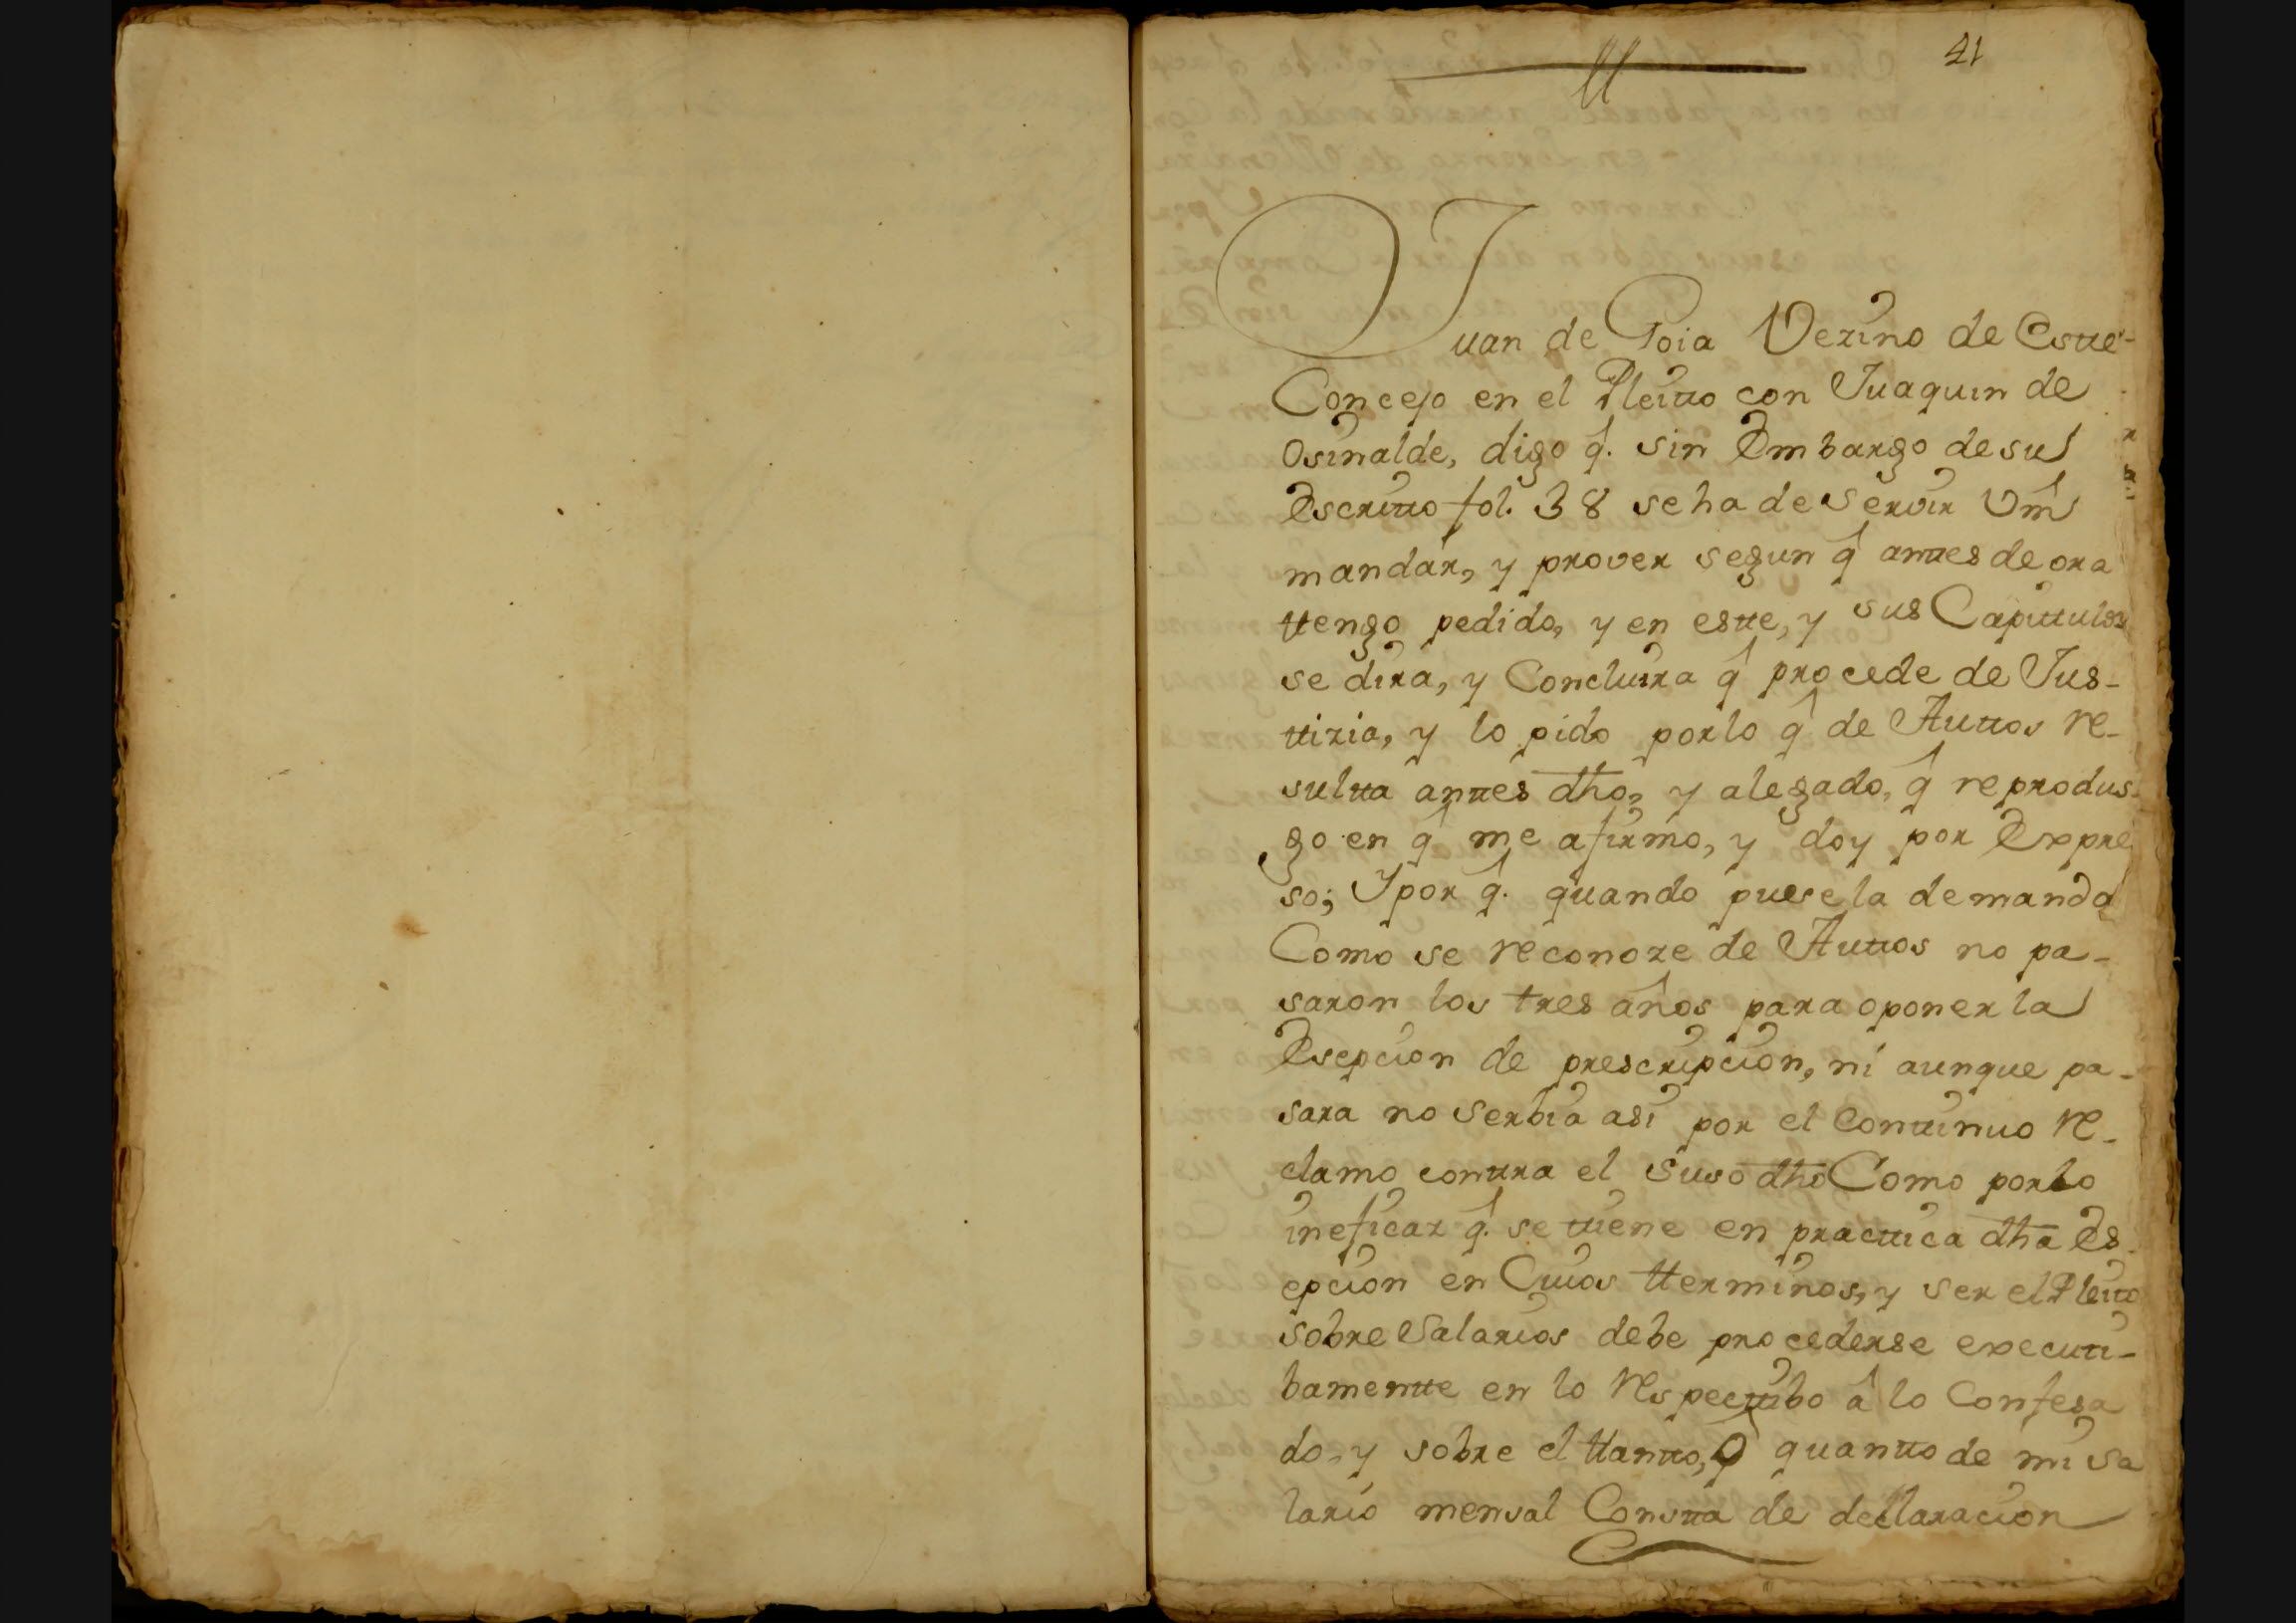 41
Juan de Goia Vezino de Estte
Concejo en el Pleitto con Juaquin de
Osinalde, digo q̂. sin Embargo de su
Escritto fol. 38 se ha de Servir Vm̂
mandar, y prover segun q̂ anttes de ora
ttengo pedido, y en estte, y sus Capittulos
se dira, y Concluira q̂ procede de Jus-
ttizia, y lo pido por lo q̂ de Auttos re-
sultta anttes dho, y alegado, q̂ reprodus-
go en q̂ me afirmo, y doy por Expre
so; Y por q̂. quando puse la demanda
Como se reconoze de Auttos no pa-
saron los tres años para oponer la
Esepcion de prescripcion, ni aunque pa-
sara no Serbia asi por el Conttinuo re-
clamo conttra el Suso dho Como por lo
ineficaz q̂. se ttiene en practtica dha Es-
epcion en Cuios tterminos, y ser el Pleitto
sobre Salarios debe procederse executti-
bamentte en lo respecttibo â lo Confesa
do, y sobre el ttantto, O quantto de mi Sa
lario mensal Constta de declaracion